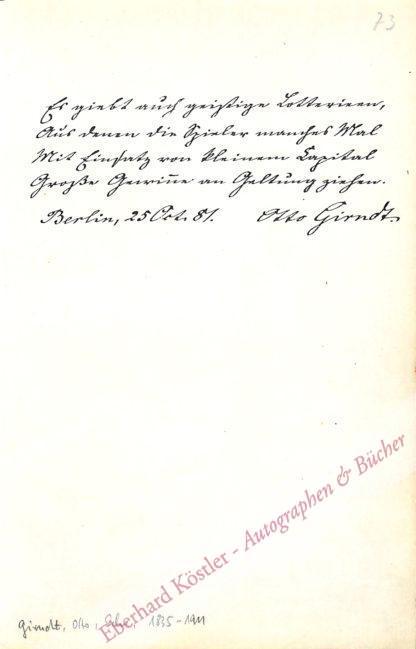 73
Es giebt auch geistige Lotterieen,
Aus denen die Spieler manches Mal
Mit Einsatz von kleinem Capital
Große Gewinne an Geltung ziehen.
Berlin, 25 Oct. 81. Otto Girndt.
Eberhard Köstler - Autographen & Bücher
Girndt, Otto, 1835-1911